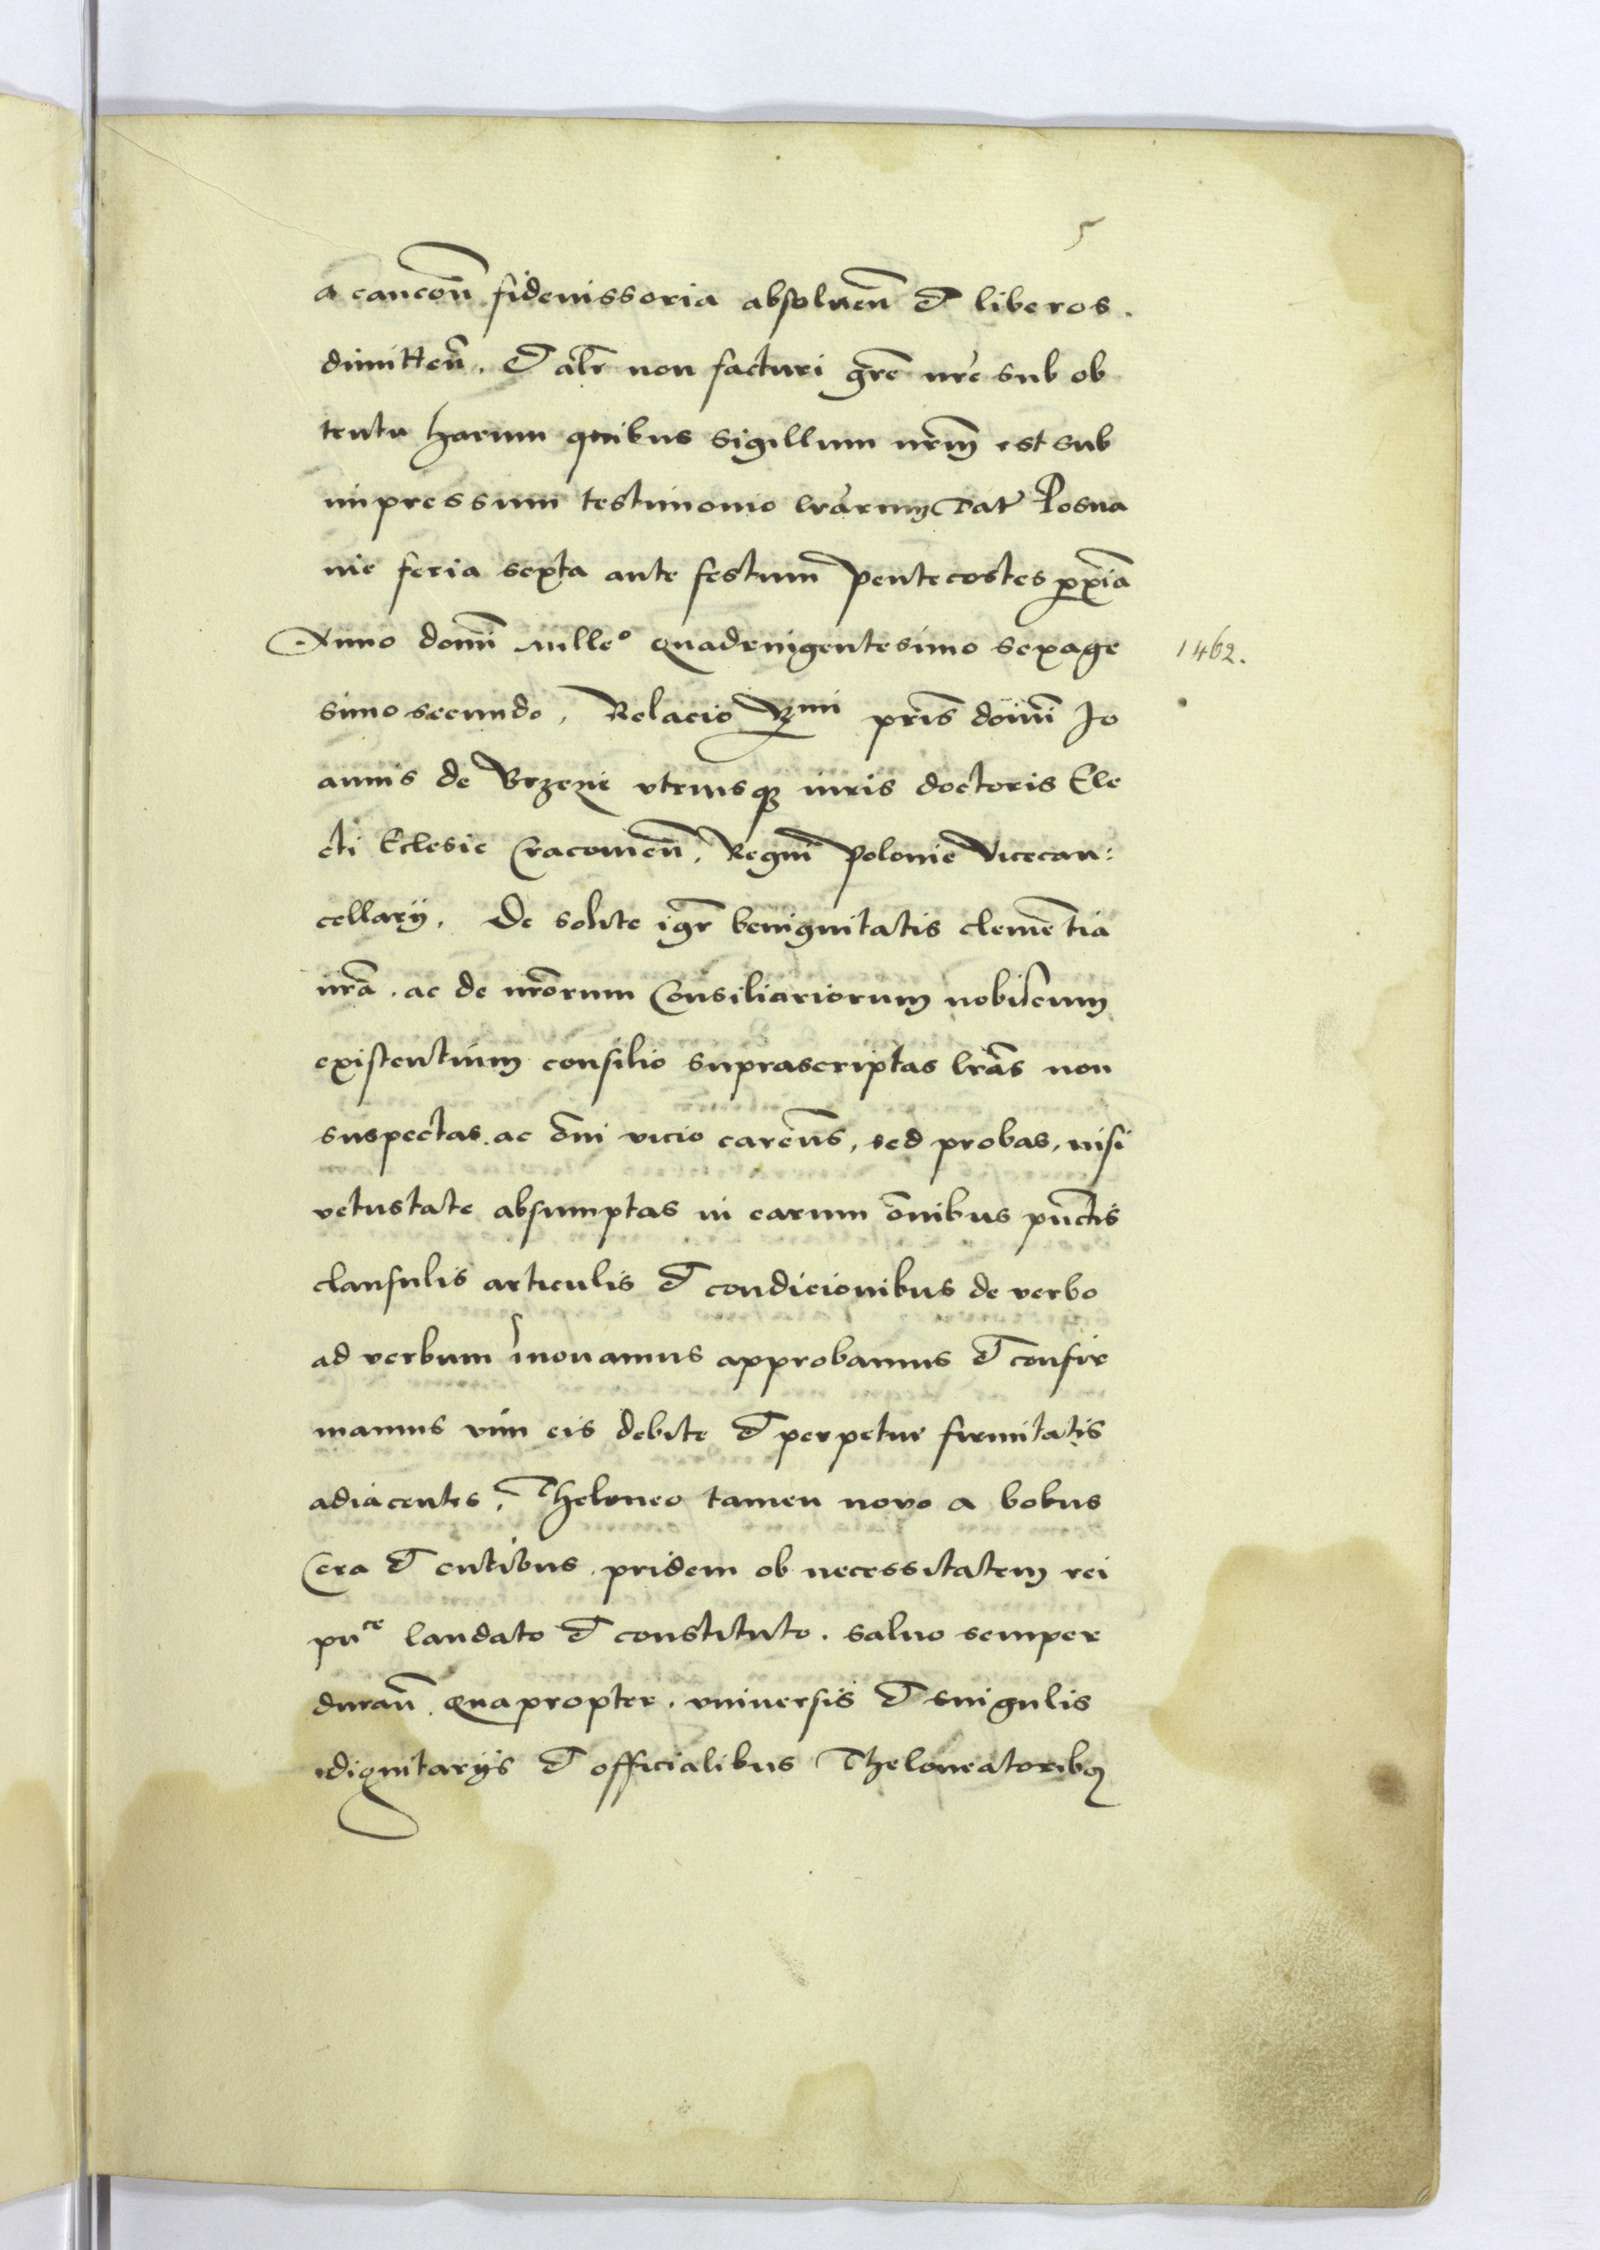 5
a caucoñ fideiussoria absoluen̄ et liberos.
dimitten̄. et alr̄ non facturi grē nrē sub ob
tentu harum quibus sigillum nrm̄ est sub
impressum testimonio lrārum Datˀ Posna
nie feria sexta ante festum pentecostes pxīa
Anno domī Mille° quadringentesimo sexage
1462.
simo secundo. Relacio Rmi pris dominī Jo
annis de Brzezie vtriusq iuris doctoris Ele
cti Eclesie Cracouien̄. Regni Polonie Vicecan:
cellarij. De solite igr̄ benignitatis clemētia
nrā. ac de nrōrum Consiliariorum nobiscum
existentium consilio suprascriptas lrās non
suspectas. ac ōni vicio carēns. sed probas. nisi
vetustate absumptas in earum ōnibus pūctis
clausulis articulis et condicionibus de verbo
ad verbum innouamus approbamus et confir
mamus vim eis debite et perpetue firmitatis
adiacentes. Theloneo tamen nouo a bobus
Cera et cutibus pridem ob necessitatem rei
puce laudato et constituto. saluo semper
duran̄. Quapropter. vniuersis et singulis
dignitarijs et officialibus Theloneatoribq